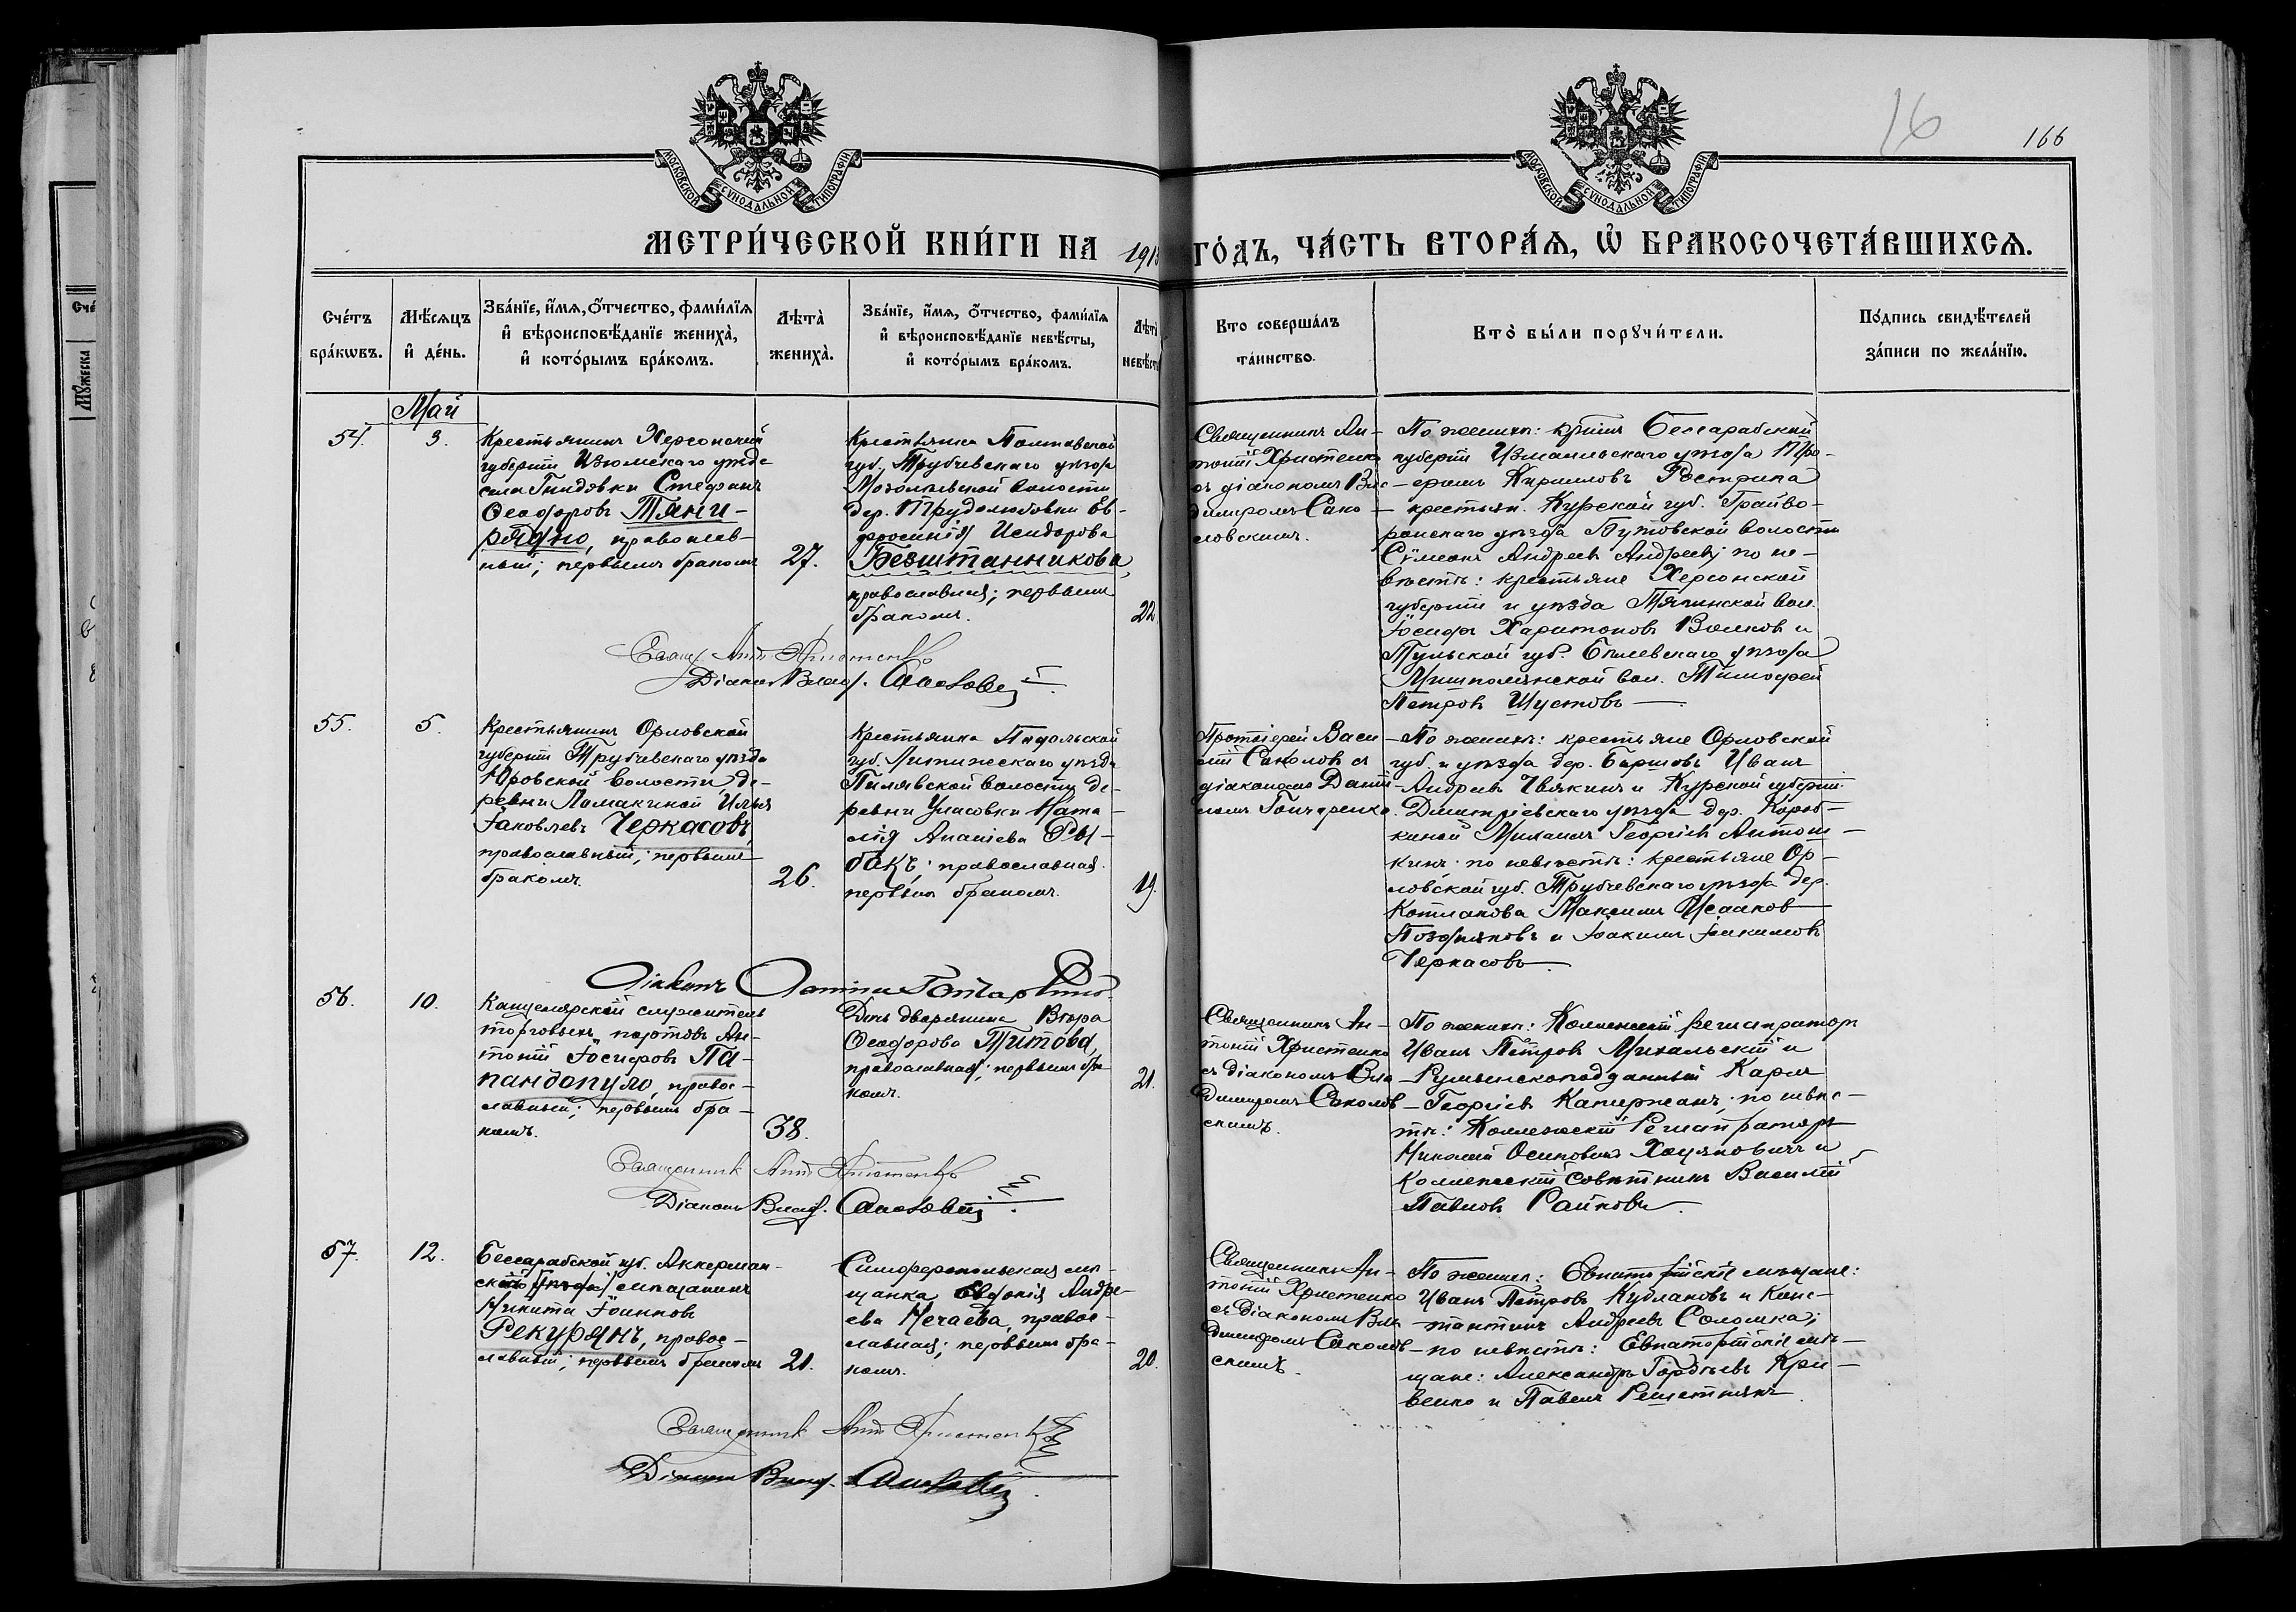 16
166
МОСКОВСКОЙ СѴНОДАЛЬНОЙ ТИПОГРАФІИ
МОСКОВСКОЙ СѴНОДАЛЬНОЙ ТИПОГРАФІИ
МЕТРИ́ЧЕСКОЙ КНИ́ГИ НА 191
ГО́ДЪ, ЧА́СТЬ ВТОРА́Ѧ, Ѽ БРАКОСОЧЕТА́ВШИХСѦ.
Сче́тъ бра́кѡвъ.
Мѣ́сѧцъ и҆ де́нь.
Зва́нїе, и҆́мѧ, ѻ҆́тчество, фами́лїѧ
и҆ вѣроисповѣ́данїе жениха̀,
и҆ кото́рымъ бра́комъ.
Лѣта̀ жениха̀.
Зва́нїе, и҆́мѧ, ѻ҆́тчество, фами́лїѧ
и҆ вѣроисповѣ́данїе невѣ́сты,
и҆ кото́рымъ бра́комъ.
Лѣта̀
невѣ́ст
Кто соверша́лъ
та́инство.
Кто̀ бы́ли порꙋчи́тели.
По́дпись свидѣ́телей
за́писи по жела́нїю.
Май
54.
3.
Крестьянинъ Херсонской
губерніи Изюмскаго уѣзда
села Стефанъ
Ѳеодоровъ Тяни-
рядно, православ-
ный; первымъ бракомъ
27.
Крестьянка Полтавской
губ. Трубчевскаго уѣзда
волости
дер. Трудолюбовки Ев-
фросинія Исидорова
Безштанникова,
православная; первымъ
бракомъ.
22.
Священникъ Ан-
тоній Христенко
съ діакономъ Вла-
диміромъ Сако-
ловскимъ.
По женихѣ: крест. Бессарабской
губерніи Измаильскаго уѣзда Тро-
фимъ Кирилловъ
крестьян. Курской губ. Грайво-
ронскаго уѣзда волости
Сѵмеонъ Андреевъ Андреевъ; по не-
вѣстѣ: крестьяне Херсонской
губерніи и уѣзда Тягинской вол.
Іосифъ Харитоновъ Волковъ и
Тульской губ. Бѣлевскаго уѣзда
Мишполянской вол. Тимофей
Петровъ Шустовъ
Свящ. Ант. Христенко
Діаконъ Влад.
55.
5.
Крестьянинъ Орловской
губерніи Трубчевскаго уѣзда
Юровской волости, де-
ревни Ломакиной Илья
Іаковлевъ Черкасовъ,
православный; первымъ
бракомъ.
26.
Крестьянка Подольской
губ. Литинскаго уѣзда
Пилявской волости де-
ревни Уласовки Ната-
лія Ананіева Ры-
бакъ; православная
первымъ бракомъ.
19.
Протоіерей Васи-
лій Соколовъ съ
діакономъ Даніи-
ломъ Гончаренко.
По женихѣ: крестьяне Орловской
губ. и уѣзда дер. Иванъ
Андреевъ Ивякинъ и Курской губерніи
Дмитріевскаго уѣзда дер. Короб-
киной Михаилъ Георгіевъ Антош-
кинъ; по невѣстѣ: крестьяне Ор-
ловской губ. Трубчевскаго уѣзда дер.
Котлакова Максимъ Исааковъ
Поздняковъ и Іоакимъ Іоакимовъ
Черкасовъ.
Діаконъ Даніилъ Гончаренко.
56.
10.
Канцелярскій служитель
торговыхъ портовъ Ан-
тоній Іосифовъ Па-
пандопуло, правос-
лавный; первымъ бра-
комъ.
38.
Дочь дворянина Вѣра
Ѳеодорова Титова,
православная; первымъ бра-
комъ.
21.
Священникъ Ан-
тоній Христенко
съ діакономъ Вла-
диміромъ Саколов-
скимъ.
По женихѣ: Коллежскій регистраторъ
Иванъ Петровъ Михальскій и
Румынскоподданный Карлъ
Георгіевъ по невѣс-
тѣ: Коллежскій Регистраторъ
Николай Осиповичъ и
Коллежскій Совѣтникъ Василій
Павловъ Райковъ.
Священникъ Ант. Христенко
Діаконъ Влад.
57.
12.
Бессарабской губ. Аккерман-
скій мѣщанинъ
Никита Іоанновъ
Рекурянъ, правос-
лавный; первымъ бракомъ
21.
Симферопольская мѣ-
щанка Евдокія Андре-
ева Нечаева, правос-
лавная; первымъ бра-
комъ.
20.
Священникъ Ан-
тоній Христенко
съ діакономъ Вла-
диміромъ Саколов-
скимъ.
По женихѣ: Евпаторійскіе мѣщане:
Иванъ Петровъ Кудлаковъ и Конс-
тантинъ Андреевъ Соломка;
по невѣстѣ: Евпаторійскіе мѣ-
щане: Александръ Гордѣевъ Кри-
венко и Павелъ Решетнякъ
Священникъ Ант. Христенко
Діаконъ Влад.